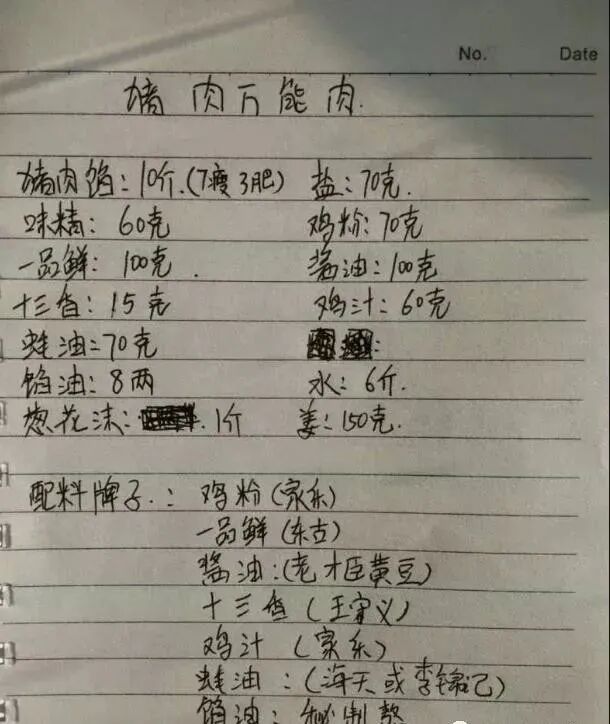 No. Date
猪肉万能肉.
猪肉馅：10斤.(7瘦3肥) 盐：70克.
味精：60克 鸡粉：70克
一品鲜：100克. 酱油：100克
十三香：15克 鸡汁：60克
蚝油：70克
馅油：8两 水：6斤.
葱花沫：1斤 姜：150克.
配料牌子.：鸡粉(家乐)
一品鲜(东古)
酱油：(老才臣黄豆)
十三香(王守义)
鸡汁(家乐)
蚝油：(海天或李锦记)
馅油：秘制熬